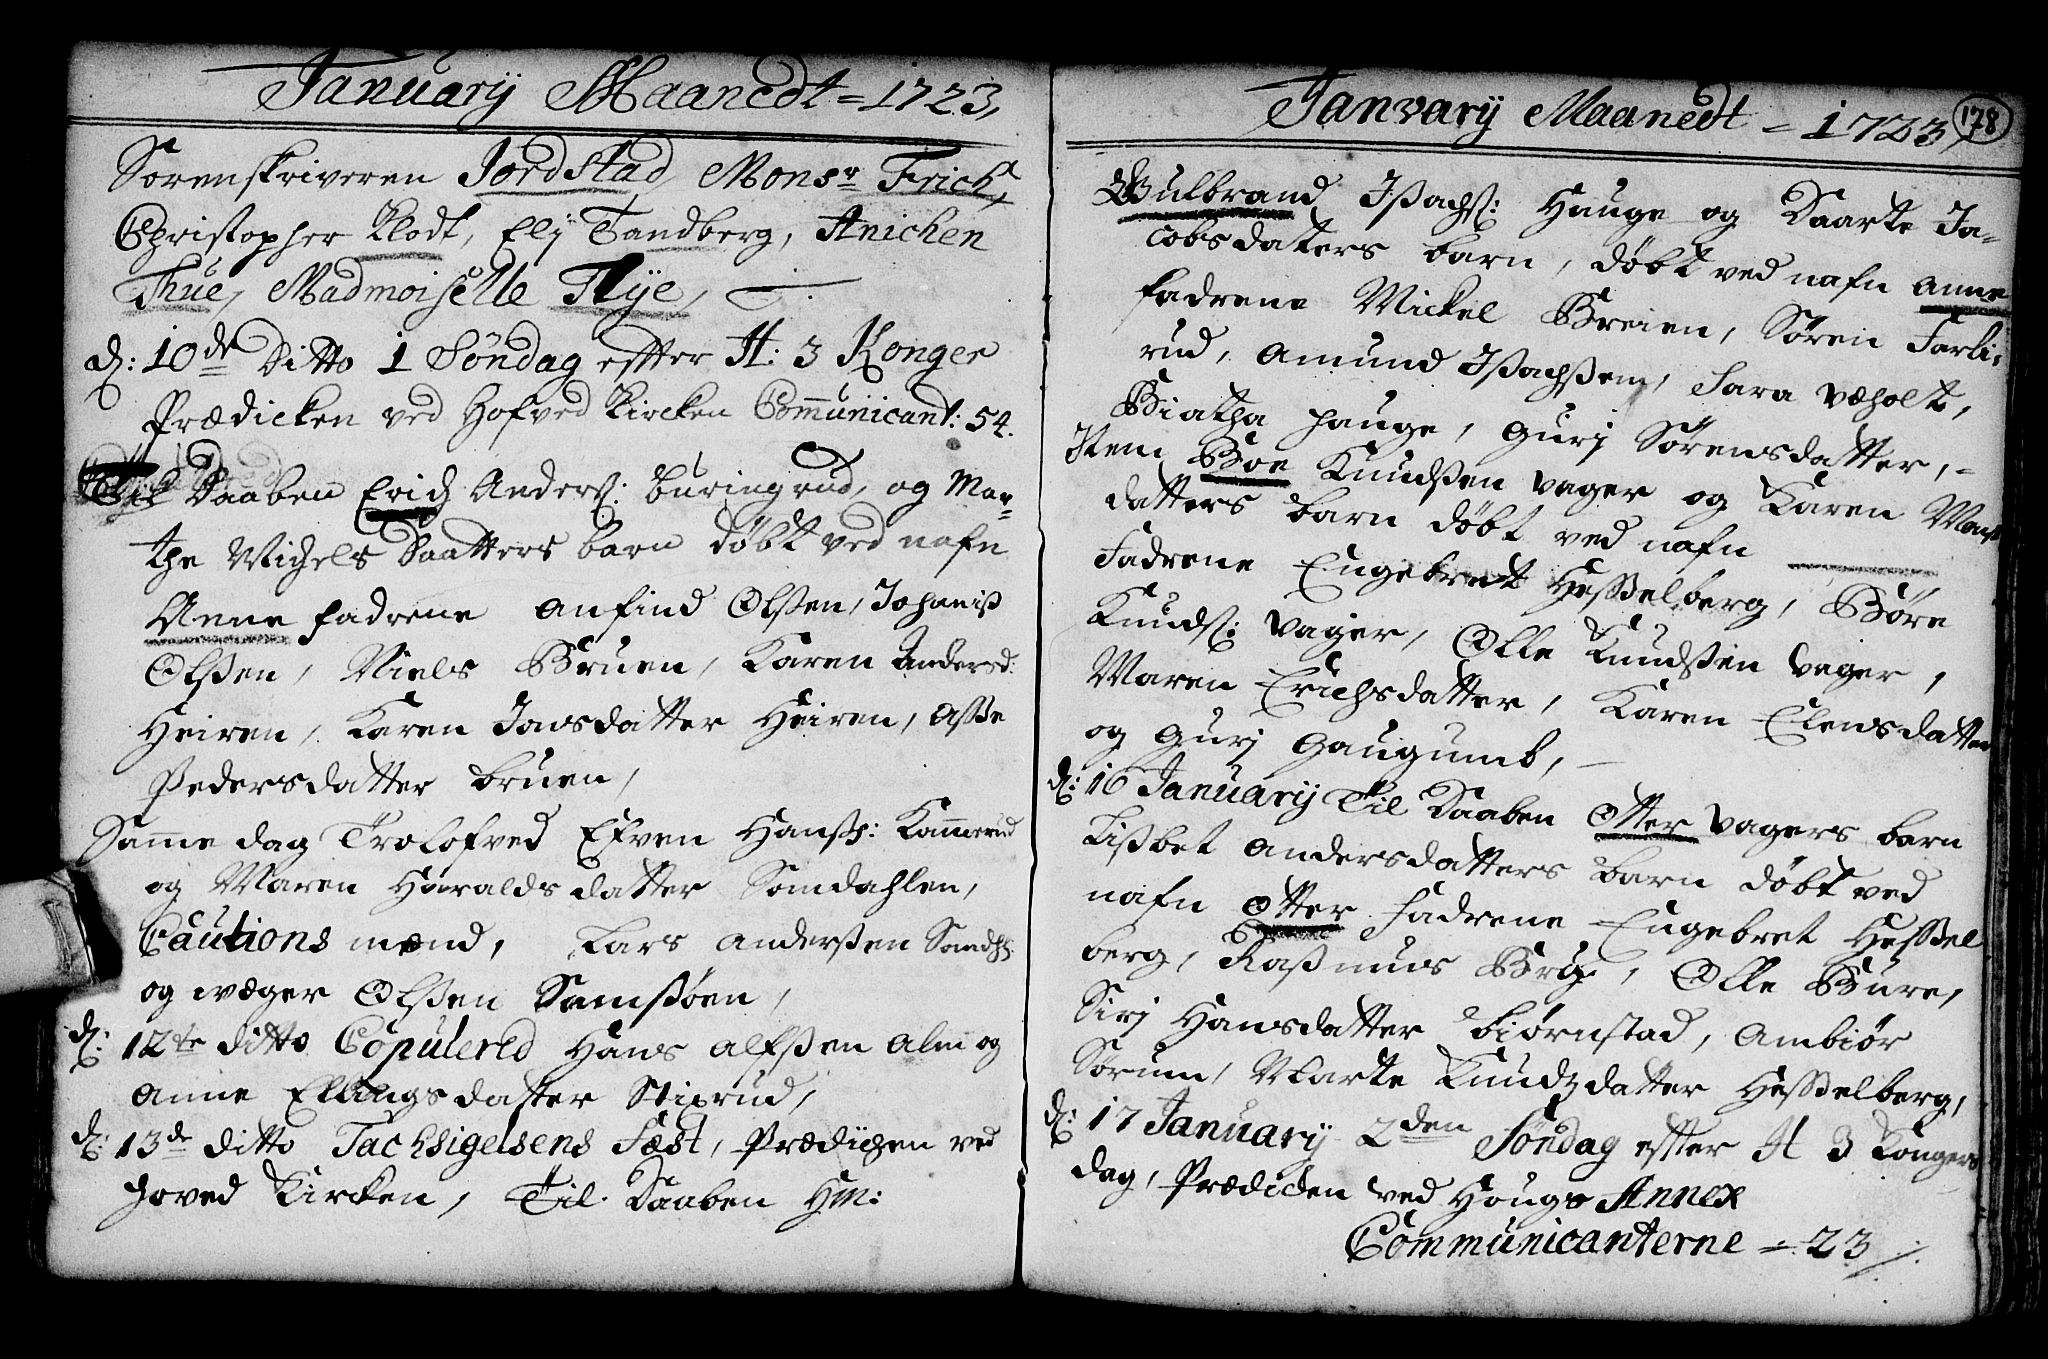 Januarÿ Maanedt = 1723,
Sorenskriveren Jordstad, Monsr Frich,
Christopher Klodt, Elj Sandberg, Anichen
Thue, Madmoiselle Flÿe,
d: 10de Ditto 1 Söndag effter H: 3 Konger
Prædicken ved Hofved Kircken Communicant: 54.
Til Daaben Erich Anders: buringrud, og Mar-
the Michels Daatters barn döbt ved nafn
Anne fadrene Anfind Olßen, Johaniß
Olßen, Niels Bruen, Karen Andersd:
Heiren, Karen Jensdatter Heiren, Asse
Pedersdatter bruen,
Same dag Trolofved Efven Hanss: Kamerud
og Maren Haralds datter Somdahlen,
Cautions mænd, Lars Anderßen
og wæger Olßen Samsöen,
d: 12te ditto Copulered Hans Alfßen Alm og
Anne Ellingsdatter Stixrud,
d: 13de ditto Tachsigelsens Fæst, Prædichen ved
hoved Kircken, Til Daaben
Janvarÿ Maanedt = 1723, 178
Gulbrand Ißachs: Hauge og Daarte Ja-
cobsdaters barn, döbt ved nafn Anne
fadrene Mickel Breien, Sören Farli-
rud, Amund Ißachßen, Sara Væholt,
Biatha Hauge, Gurj Sörensdatter, -
Item Boe Knudßen Vager og Karen
datters barn döbt ved nafn
Fadrene Engebret Hesselberg, Böre
Knuds: Vager, Olle Knudßen Vager,
Maren Erichsdatter, Karen Elensdatter
og Gurj Gaugumb,
d: 16 Januarÿ Til Daaben Otter Vagers barn
Lißbet Andersdatters barn döbt ved
nafn Otter Fadrene Engebret Hessel
berg, Raßmus Brÿe, Olle Bure,
Sirj Hansdatter Biörnstad, Ambiör
Sörum, Marte Knudzdatter Hesselberg,
d: 17 Januarÿ 2den Söndag effter H 3 Kongers
dag, Prædicken ved Hougs Annex
Communicanterne = 23